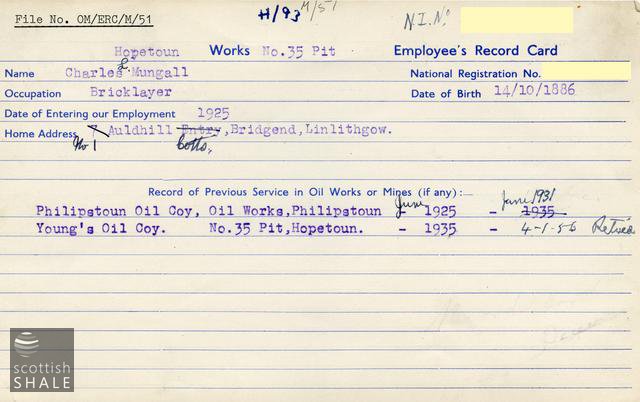 File No. OM/ERC/M/51
H/93 M/51
N.I. No
Hopetoun Works No.35 Pit Employee's Record Card
Name Charles L. Mungall National Registration No.
Occupation Bricklayer Date of Birth 14/10/1886
Date of Entering our Employment 1925
Home Address No 1 Auldhill Entry, Bridgend, Linlithgow.
Cotts,
Record of Previous Service in Oil Works or Mines (if any):—
Philipstoun Oil Coy, Oil Works, Philipstoun June - 1925 - 1935 June 1931
Young's Oil Coy. No.35 Pit, Hopetoun. - 1935 - 4-1-56 Retired
scottish
SHALE